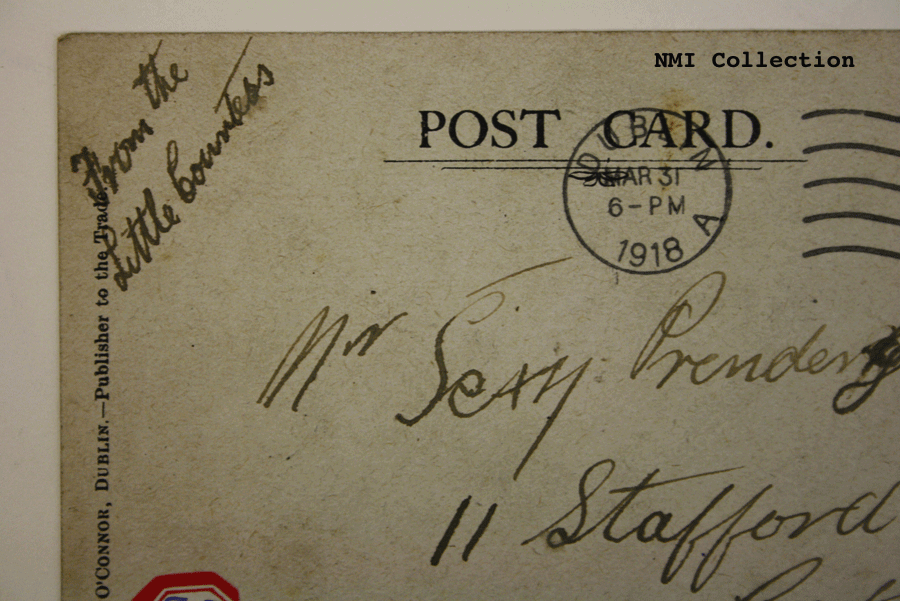 NMI Collection
From the
Little Countess
POST CARD.
DUBLIN A
MAR 31
6-PM
1918
O'CONNOR, DUBLIN.—Publisher to the Trade.
Mr Sexy
11 Stafford